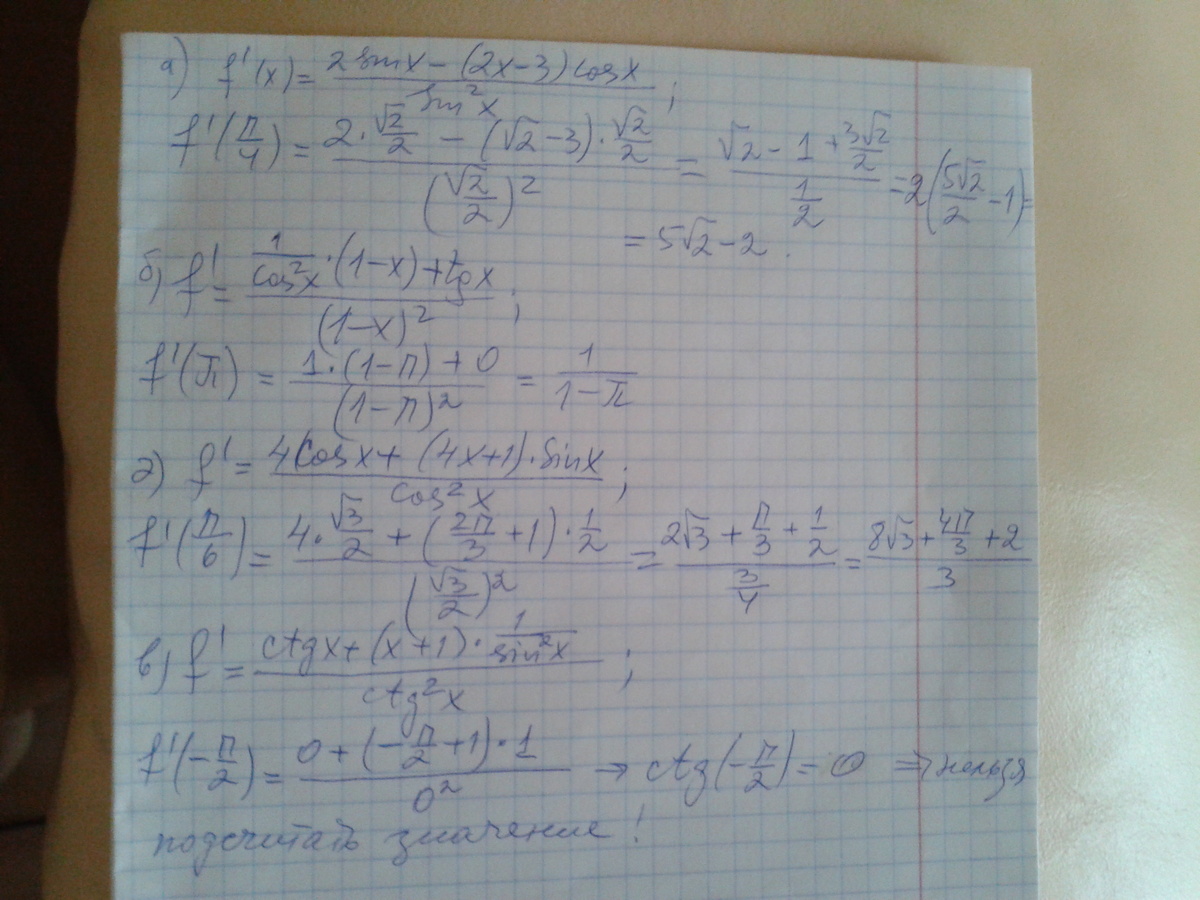 а) f'(x) = (2 sinx − (2x−3) cosx) / sin²x ;
f'(π/4) = (2·√2/2 − (√2−3)·√2/2) / (√2/2)² = (√2 − 1 + 3√2/2) / (1/2) = 2(5√2/2 − 1) =
= 5√2 − 2.
б) f' = (1/cos²x · (1−x) + tgx) / (1−x)² ;
f'(π) = (1·(1−π) + 0) / (1−π)² = 1 / (1−π)
г) f' = (4cosx + (4x+1)·sinx) / cos²x ;
f'(π/6) = (4·√3/2 + (2π/3 + 1)·1/2) / (√3/2)² = (2√3 + π/3 + 1/2) / (3/4) = (8√3 + 4π/3 + 2) / 3
в) f' = (ctgx + (x+1)·1/sin²x) / ctg²x ;
f'(−π/2) = (0 + (−π/2 + 1)·1) / 0² → ctg(−π/2) = 0 ⇒ нельзя
подсчитать значение!